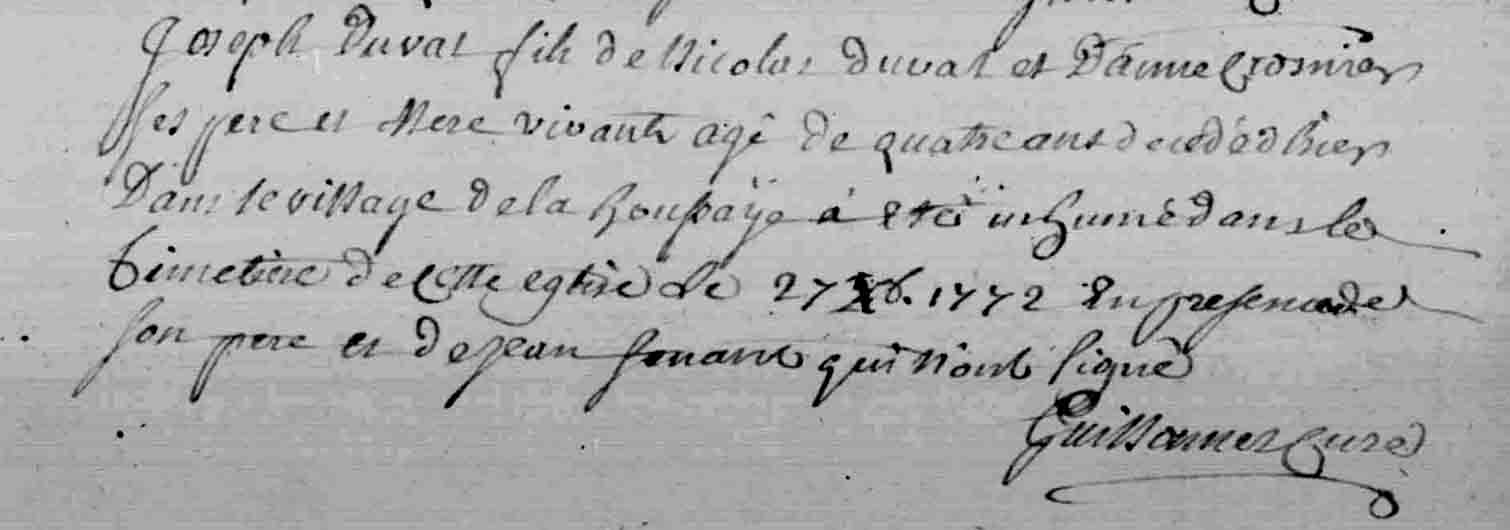 Joseph Duval fils de Nicolas Duval et D'anne Crosnier
ses pere et Mere vivants agé de quatre ans decedé d'hier
Dans le village de la houpaÿe à eté inhumé dans le
Cimetiere de cette eglise le 27 Xb. 1772 En presence de
son pere et de jean qui n'ont signé
Guillaumes Curé